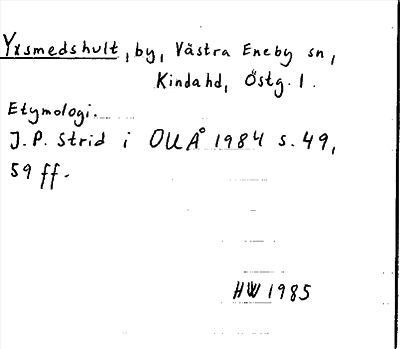 Yxsmedshult, by, Västra Eneby sn,
Kindahd, Östg. l.
Etymologi.
J.P. Strid i OUÅ 1984 s. 49,
59 ff.
HW 1985